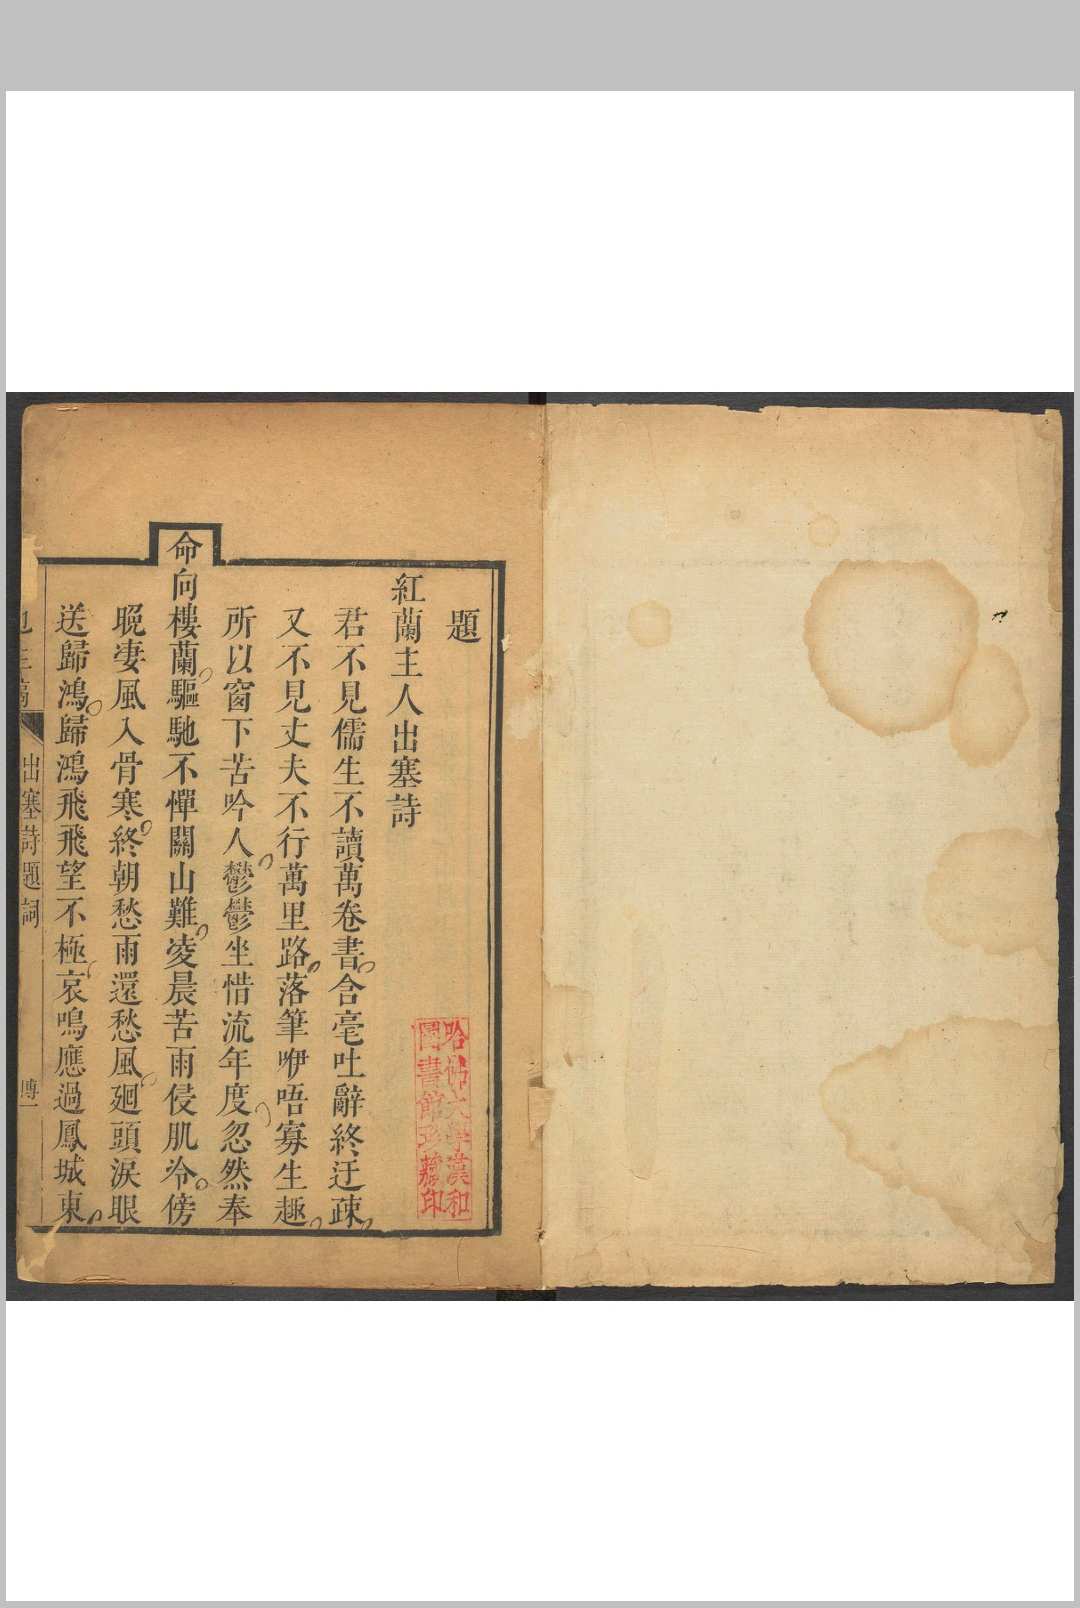 題
紅蘭主人出塞詩
君不見儒生不讀萬卷書含毫吐辭終迂疎
又不見丈夫不行萬里路落筆咿唔寡生趣
所以窗下苦吟人鬱鬱坐惜流年度忽然奉
命向樓蘭驅馳不憚關山難凌晨苦雨侵肌冷傍
晚凄風入骨寒終朝愁雨還愁風廻頭淚眼
送歸鴻歸鴻飛飛望不極哀鳴應過鳳城東
出塞詩題詞
博一
哈佛大學漢和
圖書館珍藏印